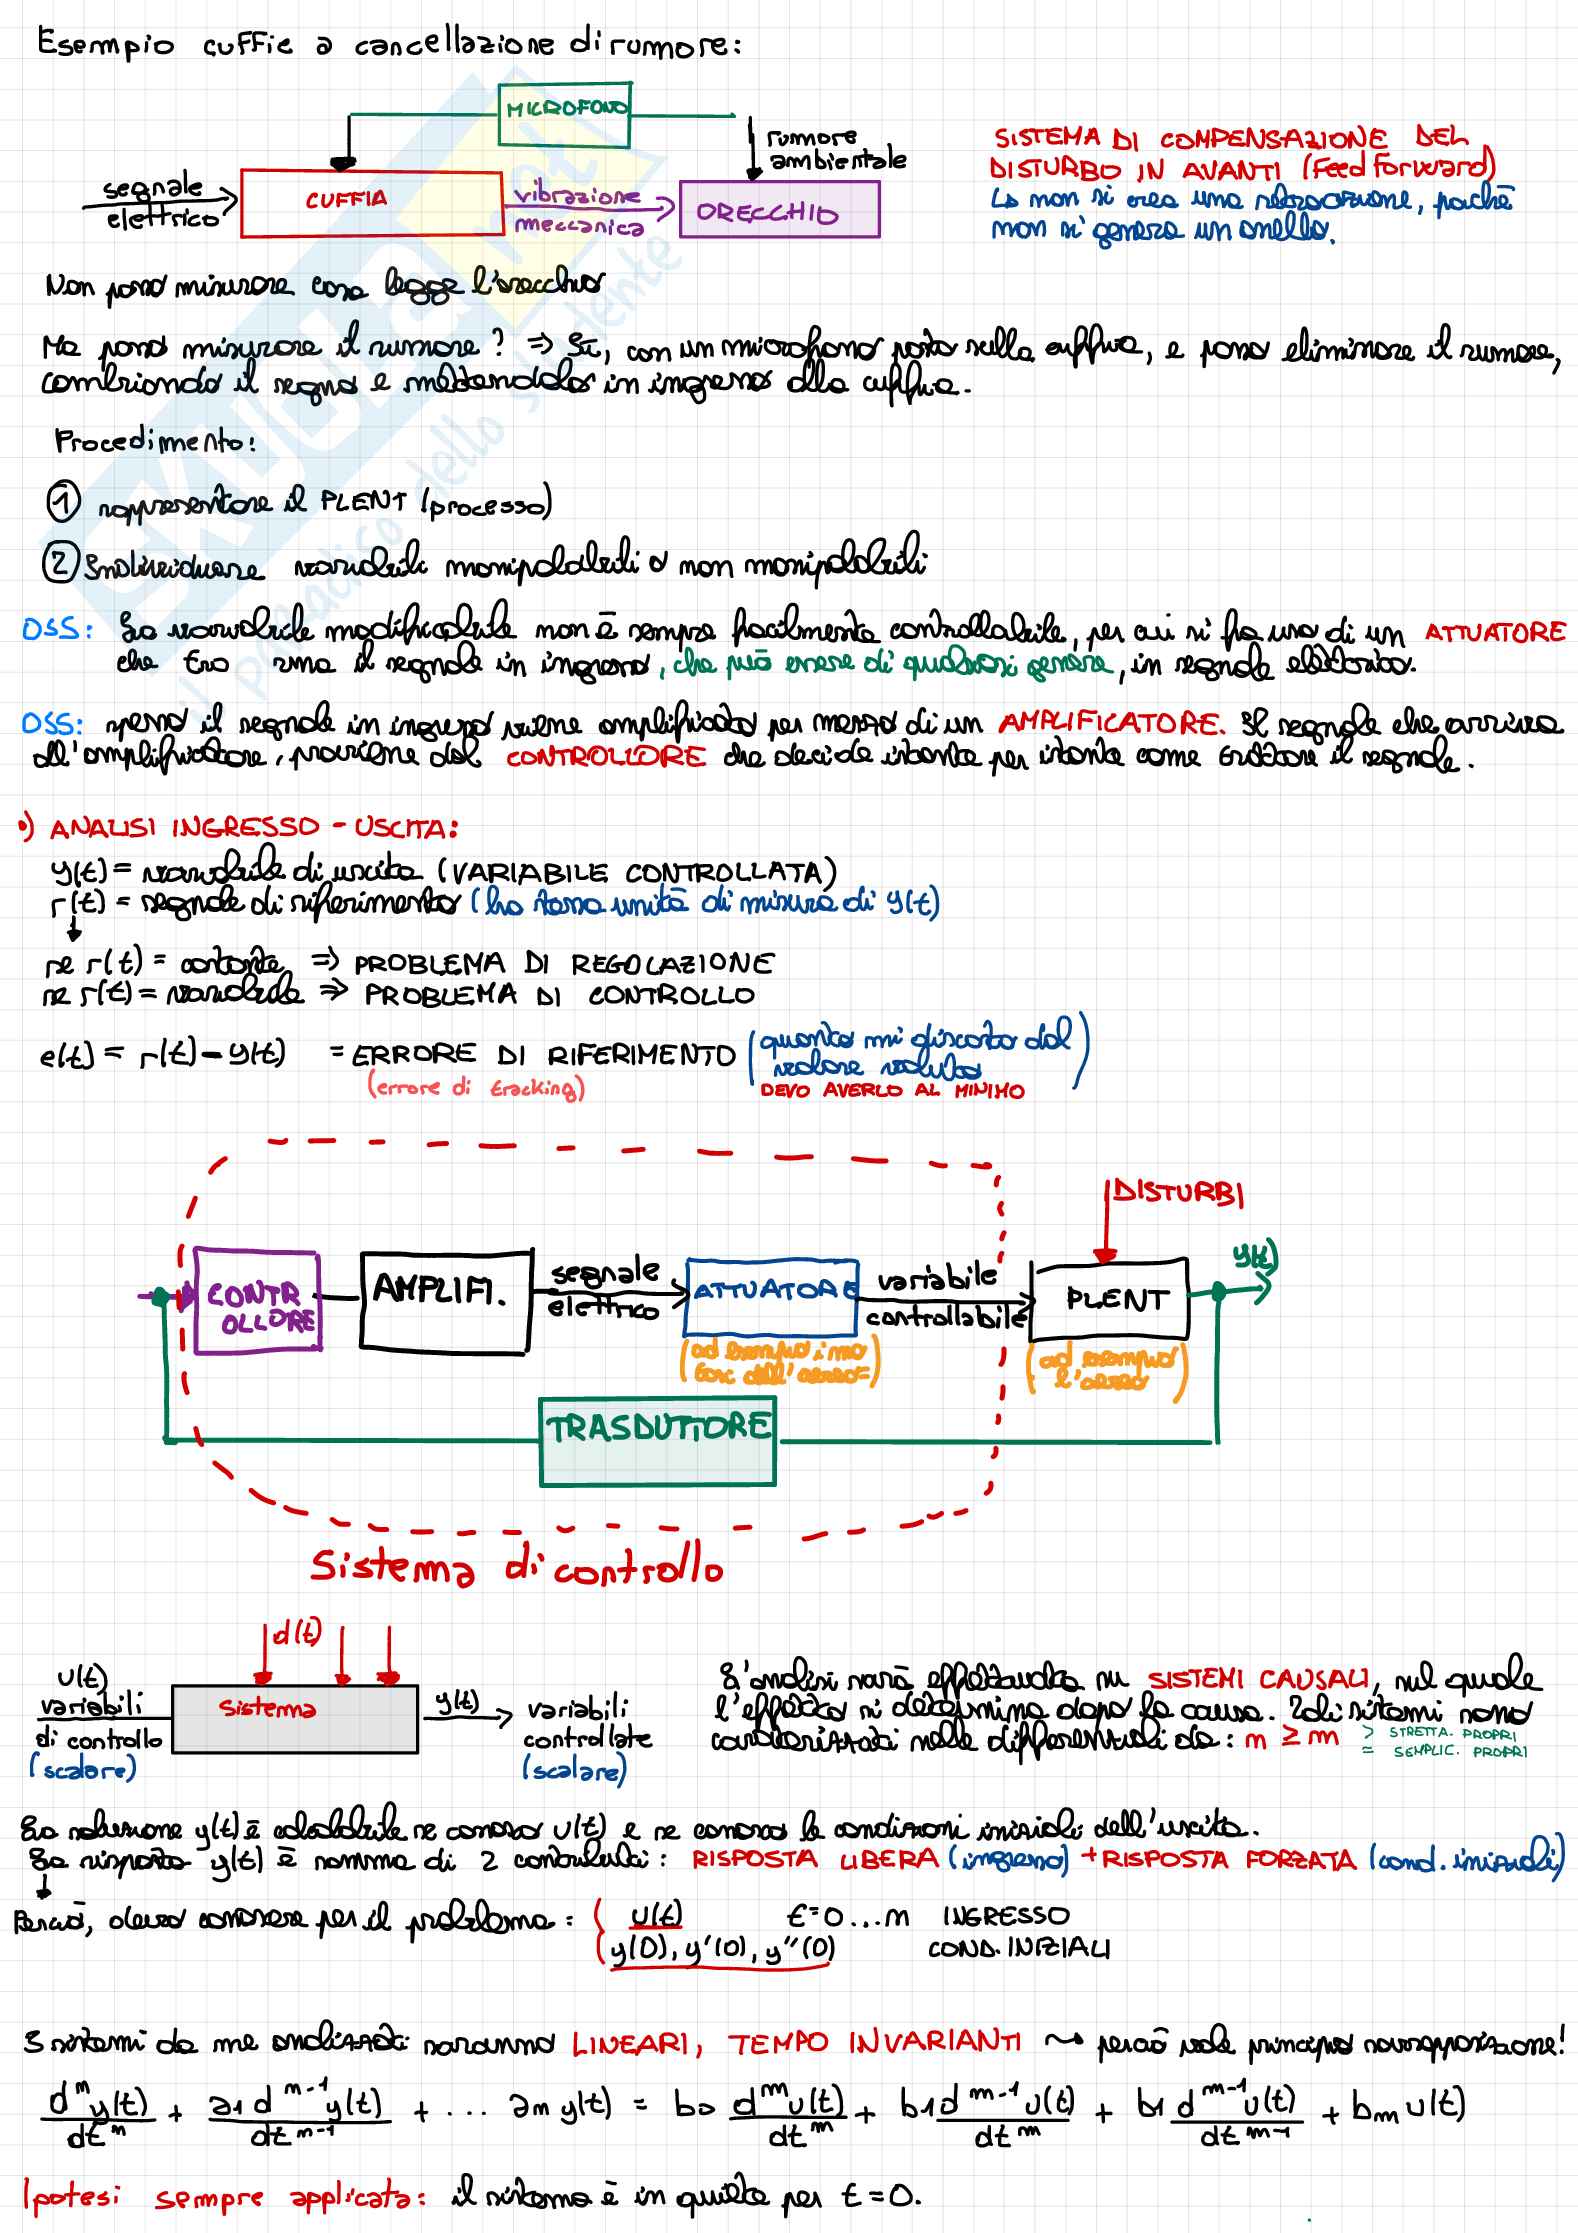 Esempio cuffie a cancellazione di rumore:
MICROFONO
rumore
ambientale
segnale
elettrico
CUFFIA
vibrazione
meccanica
ORECCHIO
SISTEMA DI COMPENSAZIONE DEL
DISTURBO IN AVANTI (Feed Forward)
Ls non si crea una retroazione, poiché
non si genera un anello.
Non posso misurare cosa legge l'orecchio
Ma posso misurare il rumore? => Sì, con un microfono posto sulla cuffia, e posso eliminare il rumore,
cambiando il segno e mettendolo in ingresso alla cuffia.
Procedimento:
1 rappresentare il PLENT (processo)
2 Individuare variabili manipolabili o non manipolabili
OSS: La variabile modificabile non è sempre facilmente controllabile, per cui si fa uso di un ATTUATORE
che il segnale in ingresso, che può essere di qualsiasi genere, in segnale elettrico.
OSS: spesso il segnale in ingresso viene amplificato per mezzo di un AMPLIFICATORE. Il segnale che arriva
all'amplificatore, proviene dal CONTROLLORE che decide istante per istante come trattare il segnale.
•) ANALISI INGRESSO - USCITA:
y(t) = variabile di uscita (VARIABILE CONTROLLATA)
r(t) = segnale di riferimento (ha stessa unità di misura di y(t)
se r(t) = costante => PROBLEMA DI REGOLAZIONE
se r(t) = variabile => PROBLEMA DI CONTROLLO
e(t) = r(t) - y(t) = ERRORE DI RIFERIMENTO (quanto mi discosto dal
valore voluto)
(errore di tracking)
DEVO AVERLO AL MINIMO
DISTURBI
y(t)
CONTR
OLLORE
AMPLIFI.
segnale
elettrico
ATTUATORE
variabile
controllabile
PLENT
(ad esempio i mo
tori dell'aereo)
(ad esempio
l'aereo)
TRASDUTTORE
Sistema di controllo
d(t)
u(t)
variabili
di controllo
(scalare)
Sistema
y(t)
variabili
controllate
(scalare)
L'analisi sarà effettuata su SISTEMI CAUSALI, nel quale
l'effetto si determina dopo la causa. Tali sistemi sono
caratterizzati nelle differenziali da: n ≥ m
> STRETTA. PROPRI
= SEMPLIC. PROPRI
La soluzione y(t) è calcolabile se conosco u(t) e se conosco le condizioni iniziali dell'uscita.
La risposta y(t) è somma di 2 contributi: RISPOSTA LIBERA (ingresso) + RISPOSTA FORZATA (cond. iniziali)
Perciò, devo conoscere per il problema: { u(t) t=0...m INGRESSO
y(0), y'(0), y''(0) COND. INIZIALI
I sistemi da me analizzati saranno LINEARI, TEMPO INVARIANTI ~> perciò vale principio sovrapposizione!
d^n y(t)/dt^n + a1 d^n-1 y(t)/dt^n-1 + ... an y(t) = b0 d^m u(t)/dt^m + b1 d^m-1 u(t)/dt^m + b1 d^m-1 u(t)/dt^m-1 + bm u(t)
Ipotesi sempre applicata: il sistema è in quiete per t=0.